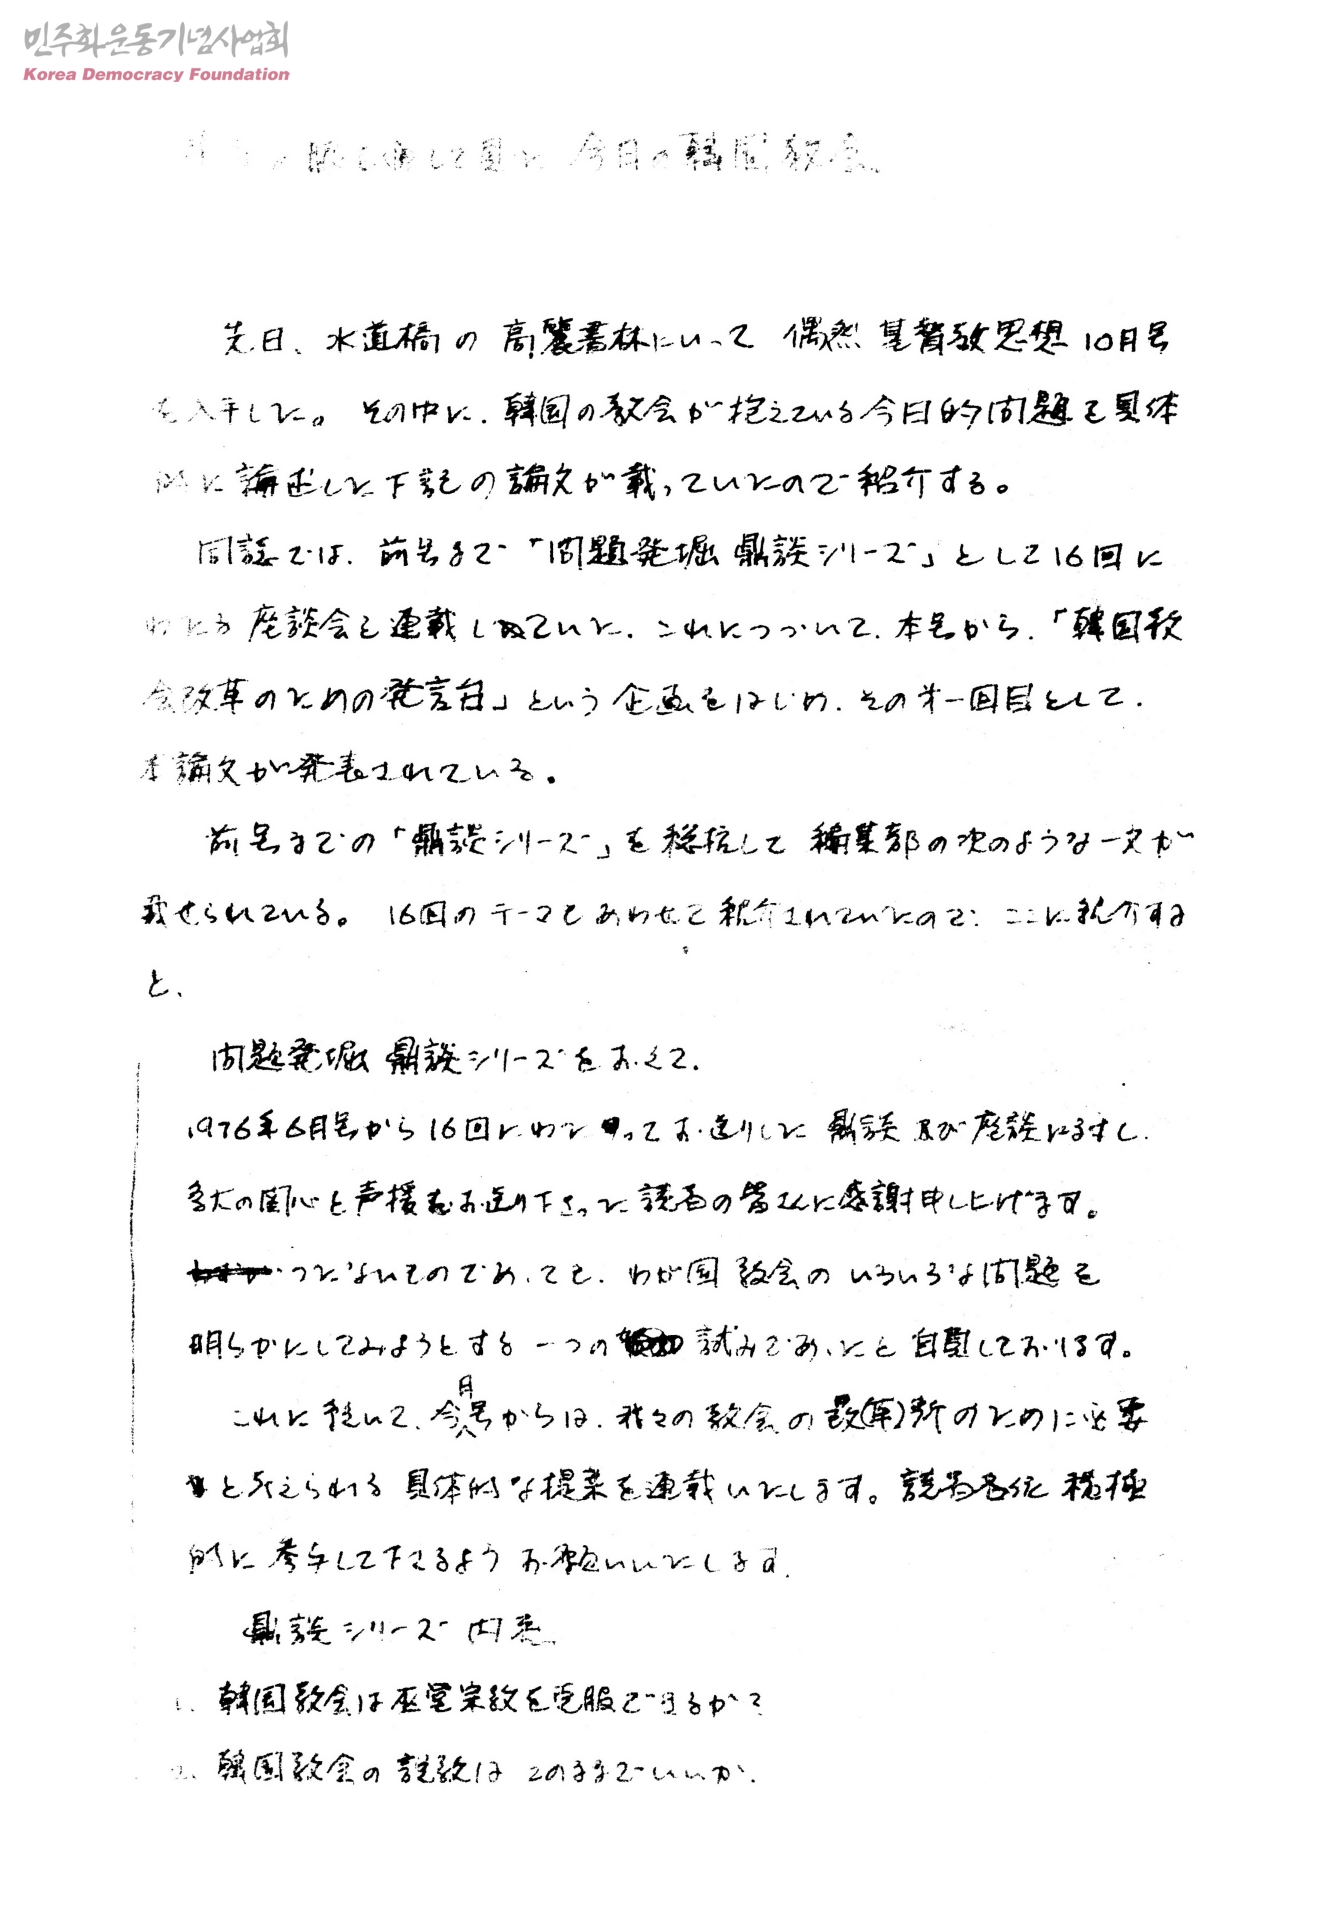 민주화운동기념사업회
Korea Democracy Foundation
を通して見た 今日の韓国教会
先日、水道橋の高麗書林にいって 偶然 基督教思想10月号
を入手した。その中に、韓国の教会が抱えている今日的問題を具体
的に論述した下記の論文が載っていたので紹介する。
同誌では、前号まで「問題発掘 鼎談シリーズ」として16回に
わたる座談会を連載していた。これにつづいて、本号から、「韓国教
会改革のための発言台」という企画をはじめ、その才一回目として、
本論文が発表されている。
前号までの「鼎談シリーズ」を総括して編集部の次のような一文が
載せられている。16回のテーマもあわせて紹介されていたので、ここに紹介する
と、
問題発掘 鼎談シリーズをおくて、
1976年6月号から16回にわたってお送りした 鼎談及び座談に対し、
多大の関心と声援をお送り下さった読者の皆さんに感謝申し上げます。
つたないものであっても、わが国教会のいろいろな問題を
明らかにしてみようとする一つの試みであったと自負しております。
これに続いて、今月号からは、我々の教会の改(革)新のために必要
と考えられる具体的な提案を連載いたします。読者各位 積極
的に参与して下さるようお願いいたします。
鼎談シリーズ内容
1. 韓国教会は巫堂宗教を克服できるか?
2. 韓国教会の説教はこのままでいいか.